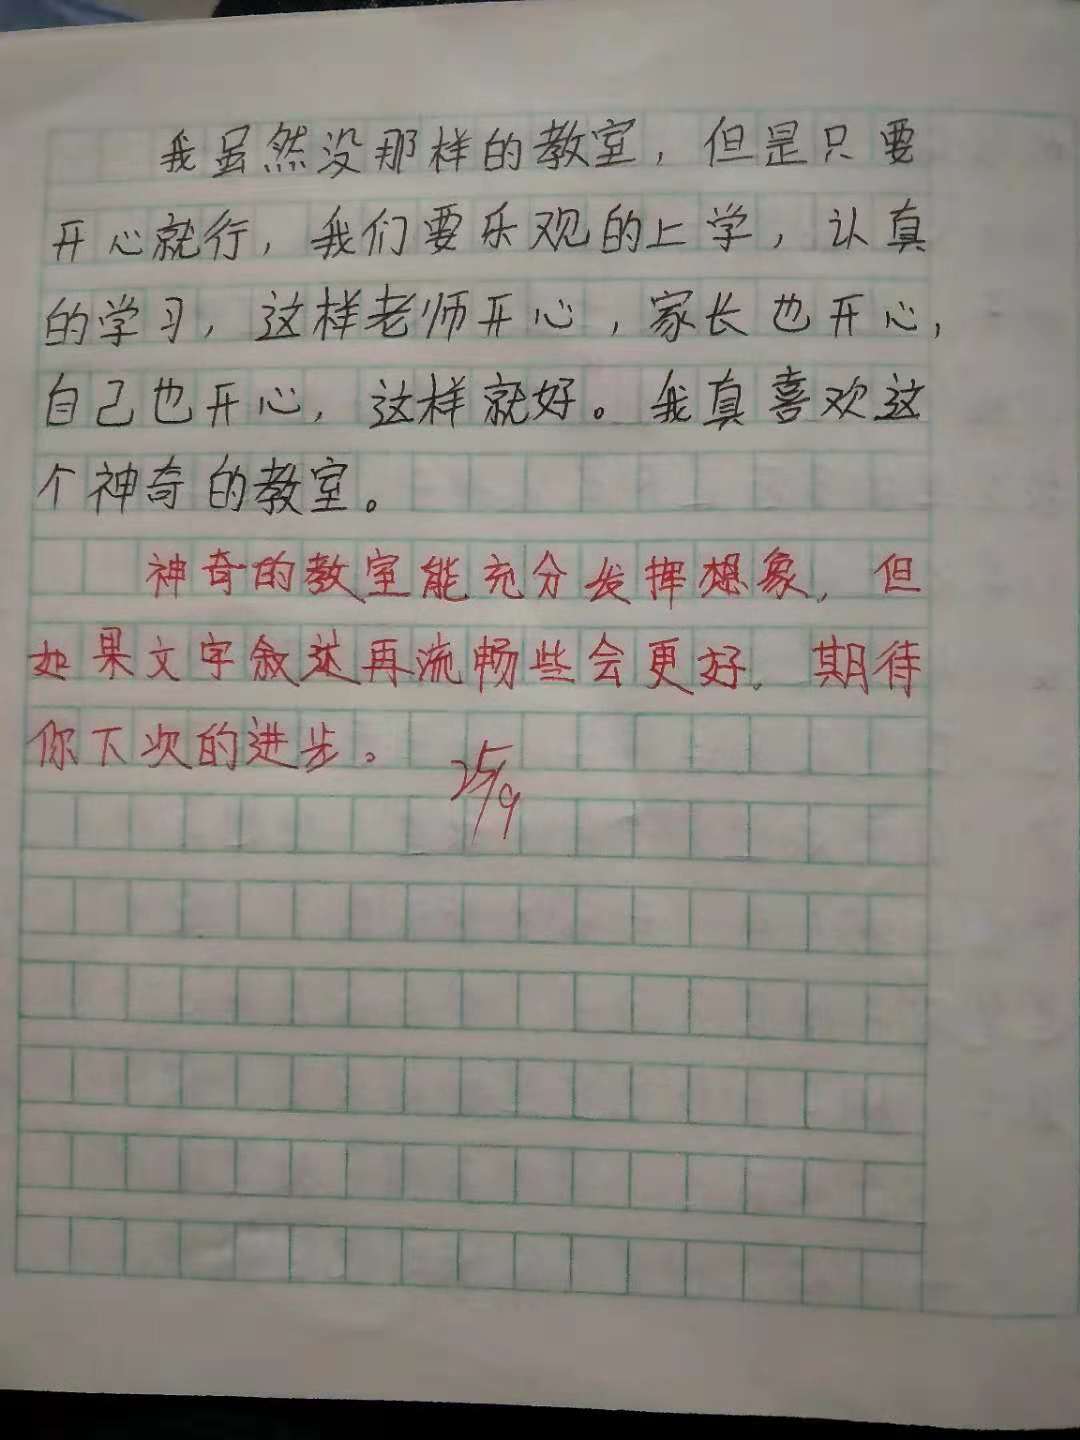 我虽然没那样的教室，但是只要
开心就行，我们要乐观的上学，认真
的学习，这样老师开心，家长也开心，
自己也开心，这样就好。我真喜欢这
个神奇的教室。
神奇的教室能充分发挥想象，但
如果文字叙述再流畅些会更好。期待
你下次的进步。
25/9